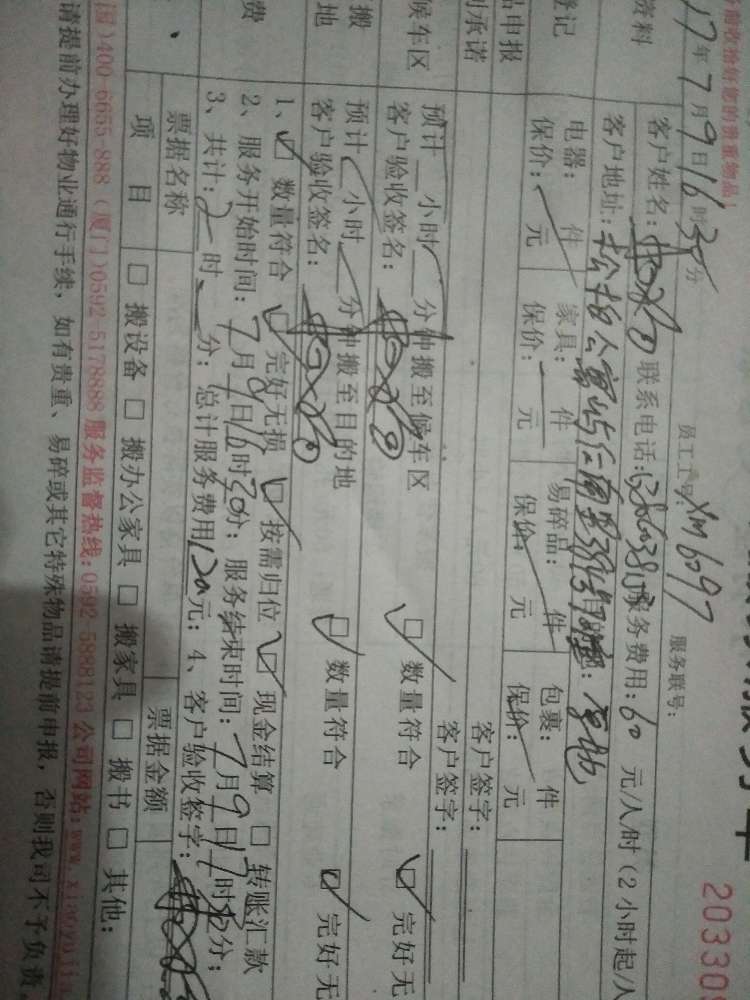 前收拾好您的贵重物品!
20330
员工工号: xm6097 服务联号:
17年7月9日16时30分
资料
客户姓名: 联系电话: 服务费用: 60 元/人/时 (2小时起/人
客户地址: 松柏公寓
登记
电器: 件 家具: 件 易碎品: 件 包裹: 件
保价: 元 保价: 元 保价: 元 保价: 元
品申报 客户签字:
承诺 客户签字:
候车区
预计 小时 分钟搬至候车区 数量符合 完好无
客户验收签名:
搬
地
预计 小时 分钟搬至目的地 数量符合 完好无
客户验收签名:
费
1、 数量符合 完好无损 按需归位 现金结算 转账汇款
2、服务开始时间: 7月9日16时30分; 服务结束时间: 7月9日17时 分;
3、共计: 2时 分; 总计服务费用120元; 4、客户验收签字:
票据名称 票据金额
项 目 搬设备 搬办公家具 搬家具 搬书 其他:
国)400-6655-888 (厦门)0592-5178888 服务监督热线:0592-5888123 公司网站:www.xiaoyujia
请提前办理好物业通行手续, 如有贵重、易碎或其它特殊物品请提前申报, 否则我司不予负责。